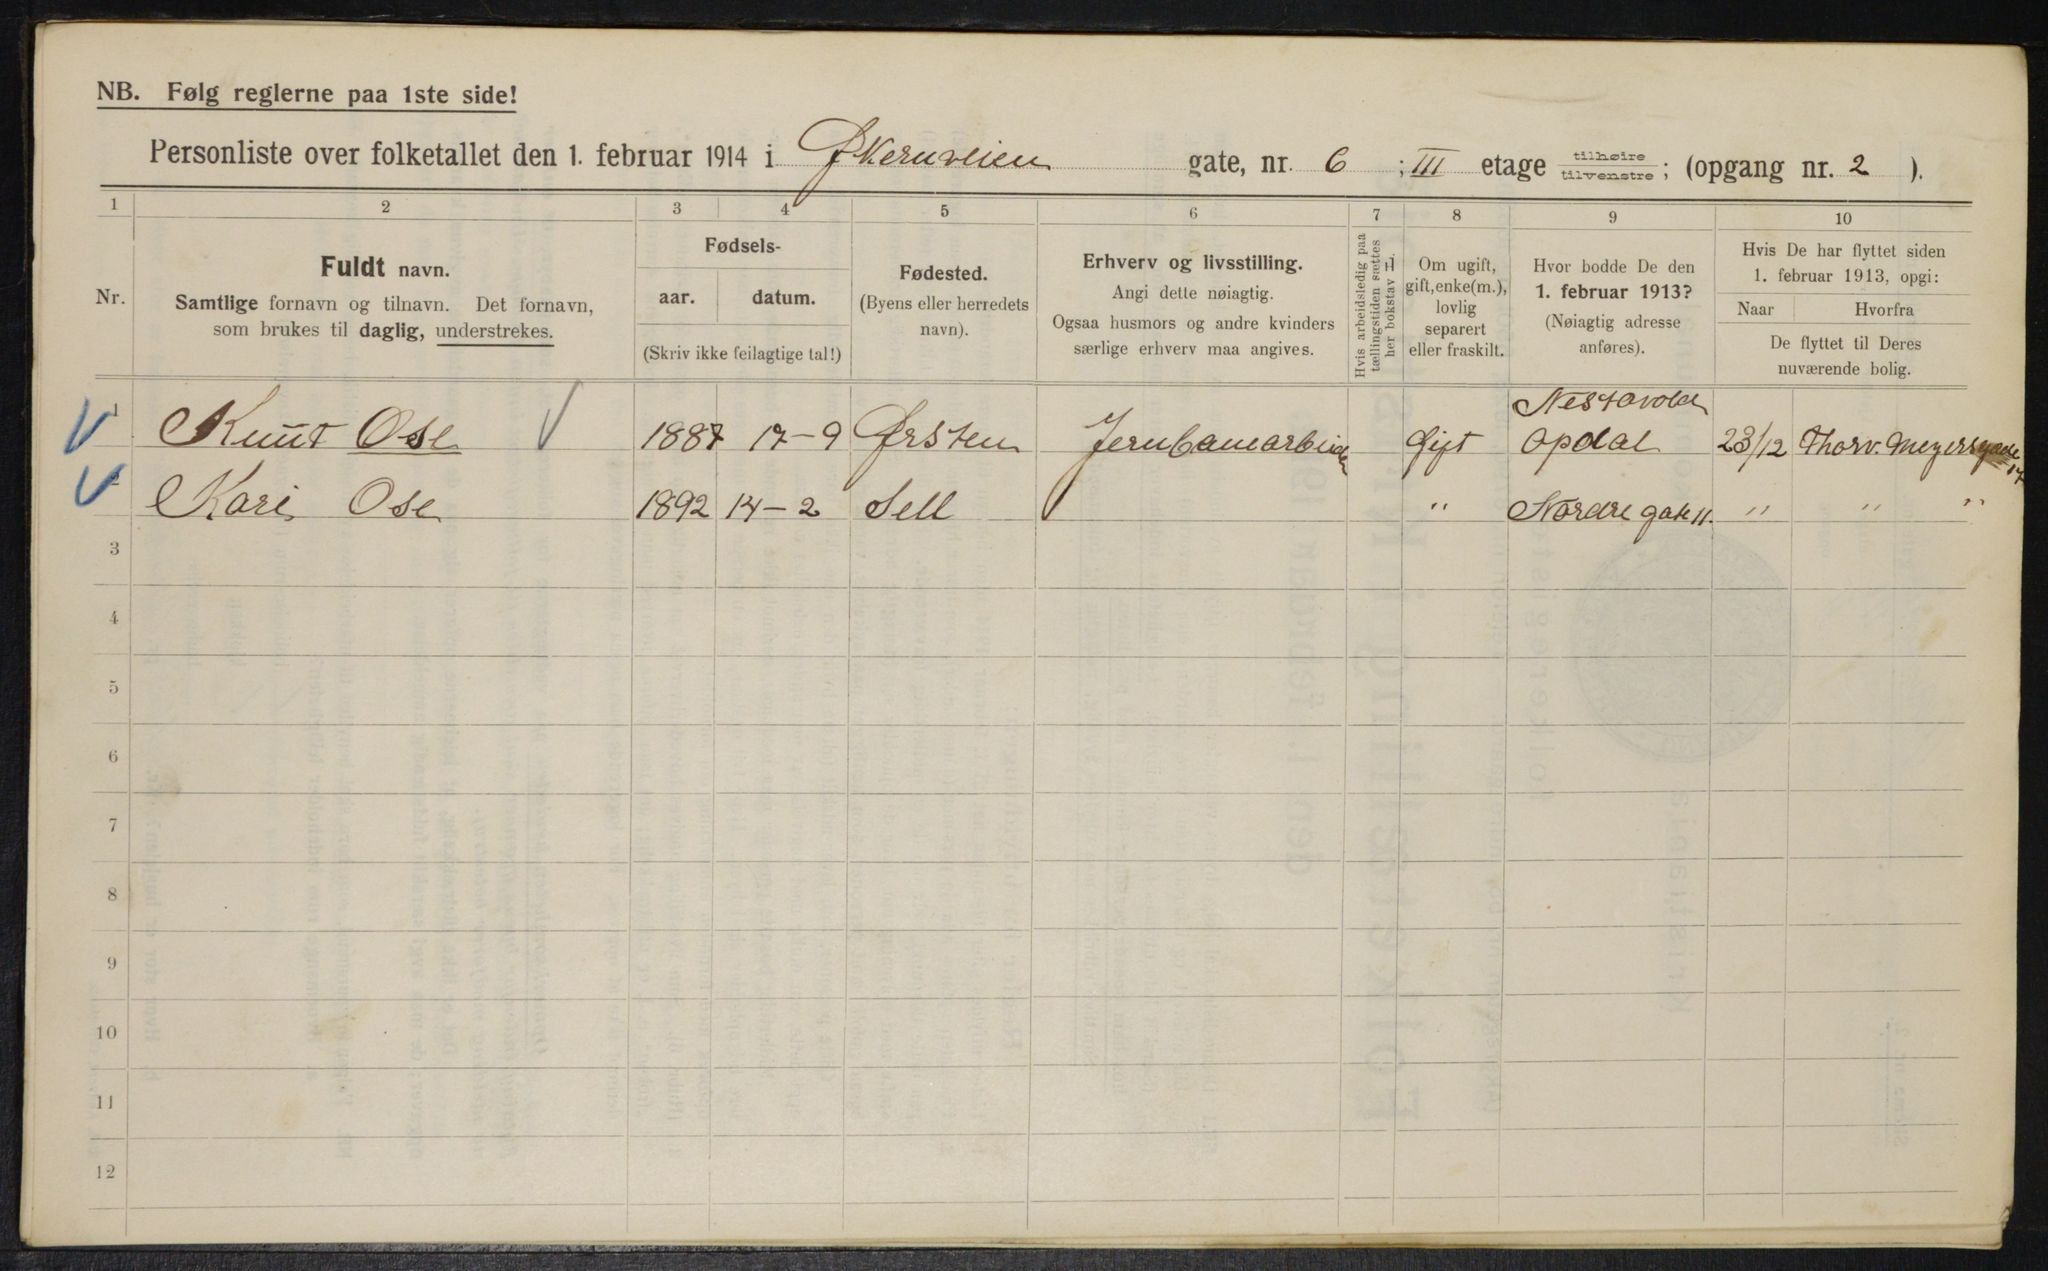 NB. Følg reglerne paa 1ste side!
Personliste over folketallet den 1. februar 1914 i Økernveien gate, nr. 6 ; III etage tilhøire tilvenstre ; (opgang nr. 2 ).
1 2 3 4 5 6 7 8 9 10
Nr.
Fuldt navn.
Samtlige fornavn og tilnavn. Det fornavn,
som brukes til daglig, understrekes.
Fødsels-
aar. datum.
(Skriv ikke feilagtige tal!)
Fødested.
(Byens eller herredets
navn).
Erhverv og livsstilling.
Angi dette nøiagtig.
Ogsaa husmors og andre kvinders
særlige erhverv maa angives.
Hvis arbeidsledig paa
tællingstiden sættes
her bokstav L
Om ugift,
gift, enke(m.),
lovlig
separert
eller fraskilt.
Hvor bodde De den
1. februar 1913?
(Nøiagtig adresse
anføres).
Hvis De har flyttet siden
1. februar 1913, opgi:
Naar Hvorfra
De flyttet til Deres
nuværende bolig.
1 Knut Ose 1887 17-9 Ørsten Jernbanearbeider Gift Nestavold Opdal 23/12 Thorv. Meyersgade 17
2 Kari Ose 1892 14-2 Sell " Nordre gate 11. " " "
3
4
5
6
7
8
9
10
11
12